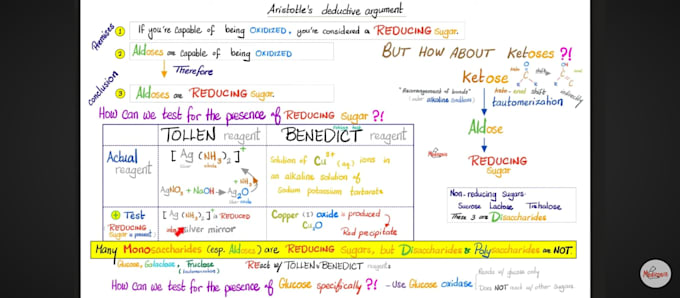 Aristotle's deductive argument
Premises
1 If you're capable of being OXIDIZED, you're considered a REDUCING Sugar.
2 Aldoses are capable of being OXIDIZED
Therefore
Conclusion
3 Aldoses are REDUCING Sugar.
BUT HOW ABOUT Ketoses ?!
Ketose
"Rearrangement of bonds"
(under alkaline conditions)
keto-enol shift
tautomerization
indirectly
Aldose
REDUCING
Sugar
Medicosis
How can we test for the presence of REDUCING Sugar ?!
TOLLEN reagent
BENEDICT reagent
Actual
reagent
[Ag(NH₃)₂]⁺
AgNO₃ + NaOH → Ag₂O
+ NH₃
Solution of Cu²⁺(aq) ions in
an alkaline solution of
Sodium potassium tartarate
+ Test
REDUCING
Sugar is present
[Ag(NH₃)₂]⁺ is REDUCED
into silver mirror
Copper (I) oxide is produced
Cu₂O
Red precipitate
Non-reducing Sugars
Sucrose Lactose Trehalose
These 3 are Disaccharides
Many Monosaccharides (esp. Aldoses) are REDUCING Sugars, but Disaccharides & Polysaccharides are NOT.
Glucose, Galactose, Fructose
REact w/ TOLLEN & BENEDICT reagents
How can we test for the presence of Glucose specifically ?! - Use Glucose oxidase
Reacts w/ glucose only
Does NOT react w/ other sugars
Medicosis